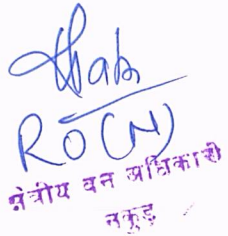 RO (N)
क्षेत्रीय वन अधिकारी
नकुड़